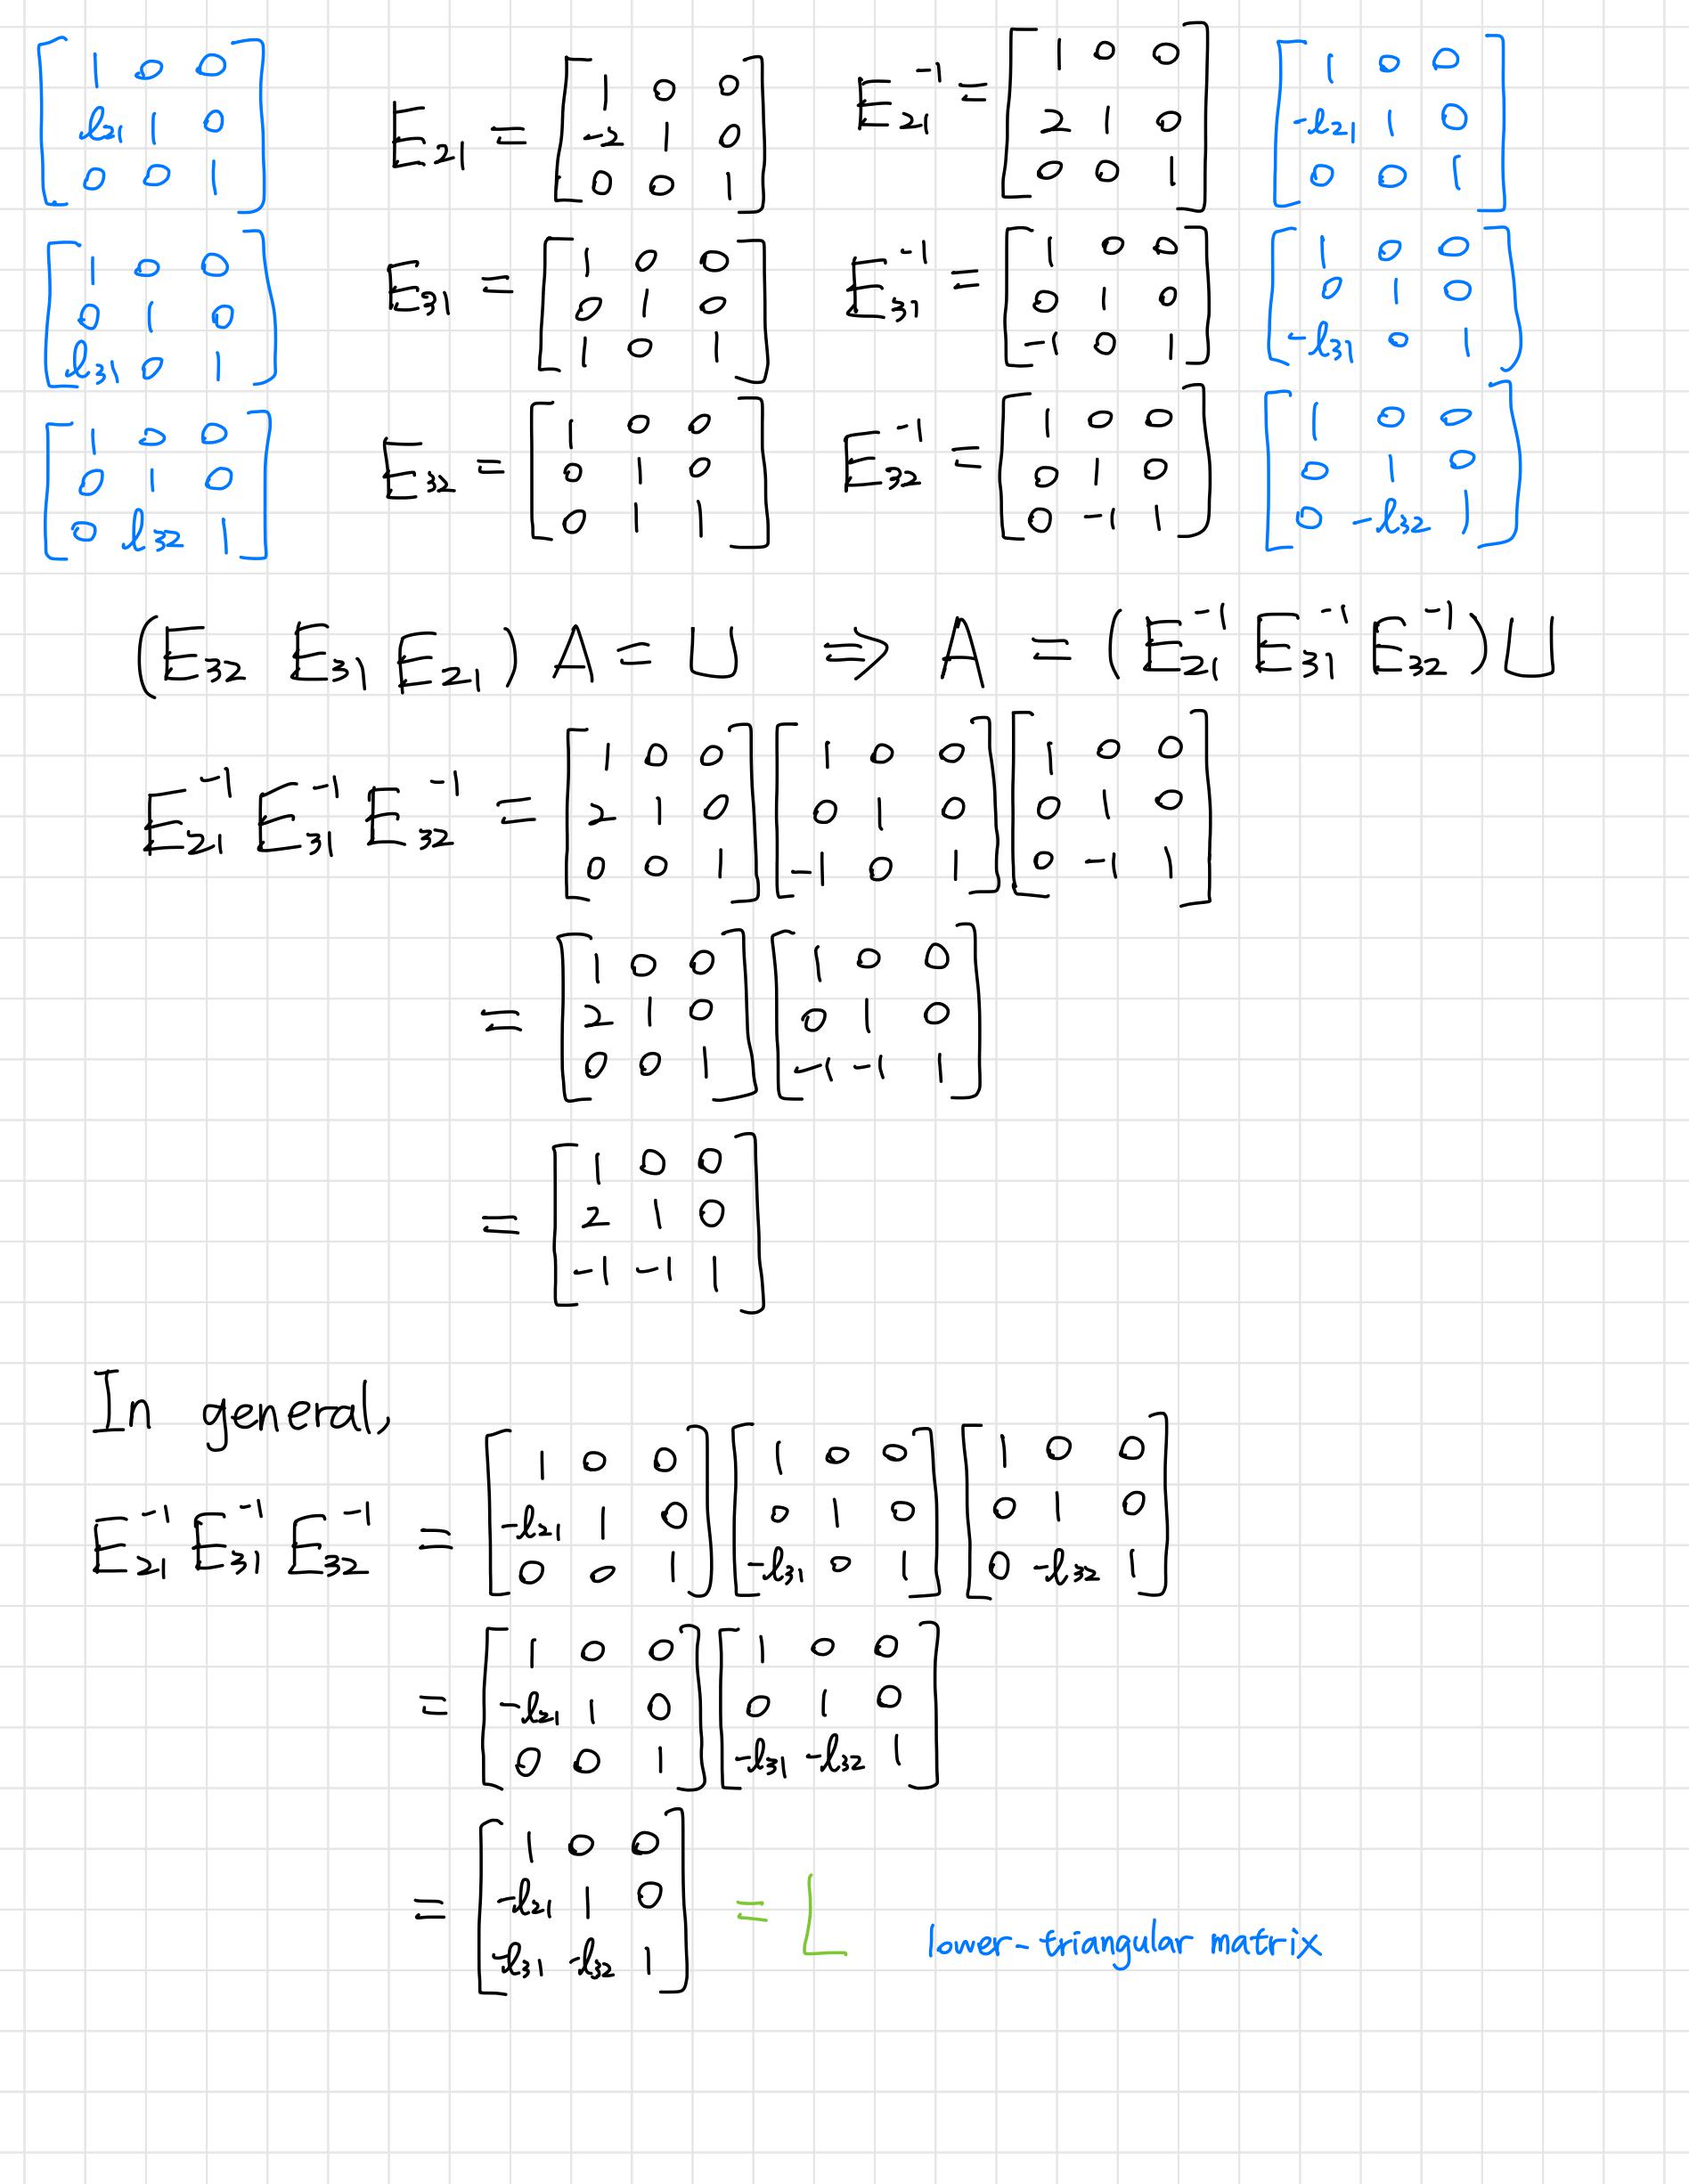 [1 0 0; l₂₁ 1 0; 0 0 1] E₂₁ = [1 0 0; -2 1 0; 0 0 1] E₂₁⁻¹ = [1 0 0; 2 1 0; 0 0 1] [1 0 0; -l₂₁ 1 0; 0 0 1]
[1 0 0; 0 1 0; l₃₁ 0 1] E₃₁ = [1 0 0; 0 1 0; 1 0 1] E₃₁⁻¹ = [1 0 0; 0 1 0; -1 0 1] [1 0 0; 0 1 0; -l₃₁ 0 1]
[1 0 0; 0 1 0; 0 l₃₂ 1] E₃₂ = [1 0 0; 0 1 0; 0 1 1] E₃₂⁻¹ = [1 0 0; 0 1 0; 0 -1 1] [1 0 0; 0 1 0; 0 -l₃₂ 1]
(E₃₂ E₃₁ E₂₁) A = U ⇒ A = (E₂₁⁻¹ E₃₁⁻¹ E₃₂⁻¹) U
E₂₁⁻¹ E₃₁⁻¹ E₃₂⁻¹ = [1 0 0; 2 1 0; 0 0 1] [1 0 0; 0 1 0; -1 0 1] [1 0 0; 0 1 0; 0 -1 1]
= [1 0 0; 2 1 0; 0 0 1] [1 0 0; 0 1 0; -1 -1 1]
= [1 0 0; 2 1 0; -1 -1 1]
In general,
E₂₁⁻¹ E₃₁⁻¹ E₃₂⁻¹ = [1 0 0; -l₂₁ 1 0; 0 0 1] [1 0 0; 0 1 0; -l₃₁ 0 1] [1 0 0; 0 1 0; 0 -l₃₂ 1]
= [1 0 0; -l₂₁ 1 0; 0 0 1] [1 0 0; 0 1 0; -l₃₁ -l₃₂ 1]
= [1 0 0; -l₂₁ 1 0; -l₃₁ -l₃₂ 1] = L lower-triangular matrix